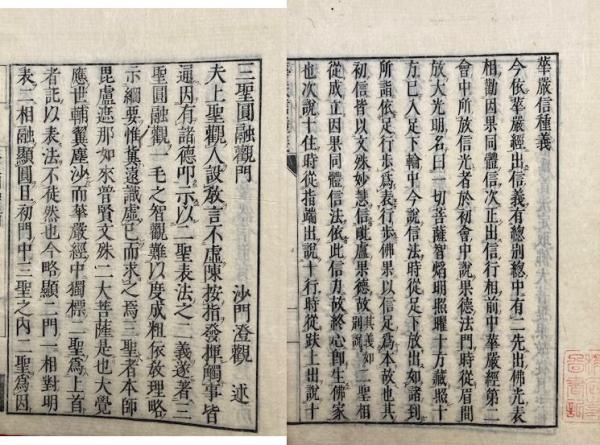 華嚴信種義
今依華嚴經出信義有總別總中有二先出佛光表
相勸因果同體信次正出信行相前中華嚴經第二
會中所放信光者於初會中說果德法門時從眉間
放大光明名曰一切菩薩智焰明照曜十方藏照十
方已入足下輪中今說信法時從足下放出如諸到
所詣依足行步為表行步佛果以信足為本故也其
初信皆以文殊妙慧信毗盧果德故則其義如二聖相
從成立因果同體信法依此信力故終心即生佛家
也次說十住時從指端出說十行時從趺上出說十
三聖圓融觀門
沙門澄觀 述
夫上聖觀人設敎言不虛陳按指發揮觸事皆
逼因有諸德叩余以二聖表法之二義遂著三
聖圓融觀一毛之智觀難以度成粗依敎理略
示綱要惟冀遠識虛己而求之焉三聖者本師
毘盧遮那如來普賢文殊二大菩薩是也大覺
應世輔翼塵沙而華嚴經中獨標二聖爲上首
者託以表法不徒然也今略顯二門一相對明
表二相融顯圓且初門中三聖之內二聖爲因